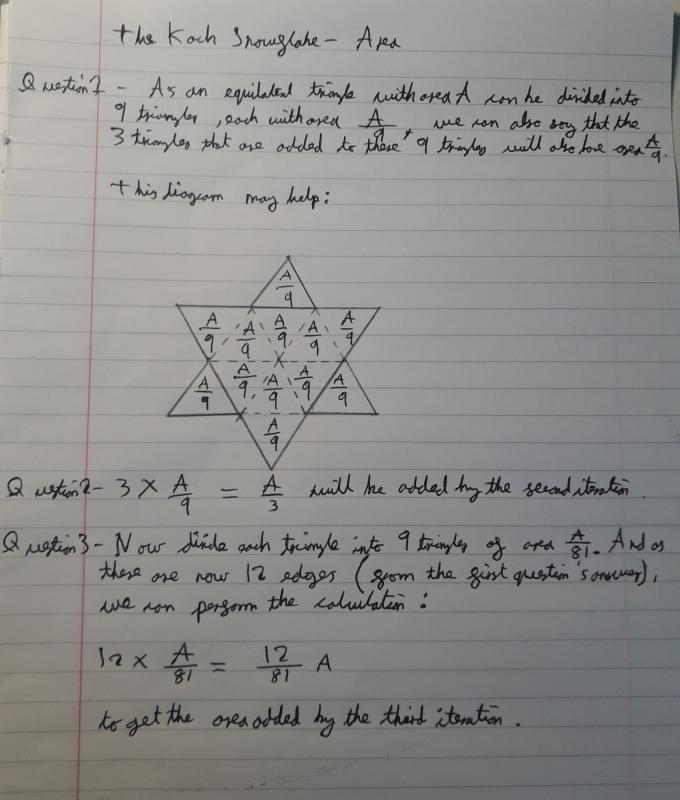 the Koch Snowflake - Area
Question 1 - As an equilateral triangle with area A can be divided into
9 triangles, each with area A/9, we can also say that the
3 triangles that are added to these 9 triangles will also have area A/9.
this diagram may help:
A/9
A/9 A/9 A/9 A/9 A/9
A/9 A/9 A/9 A/9 A/9
A/9
Question 2 - 3 × A/9 = A/3 will be added by the second iteration.
Question 3 - Now divide each triangle into 9 triangles of area A/81. And as
there are now 12 edges (from the first question's answer),
we can perform the calculation:
12 × A/81 = 12/81 A
to get the area added by the third iteration.